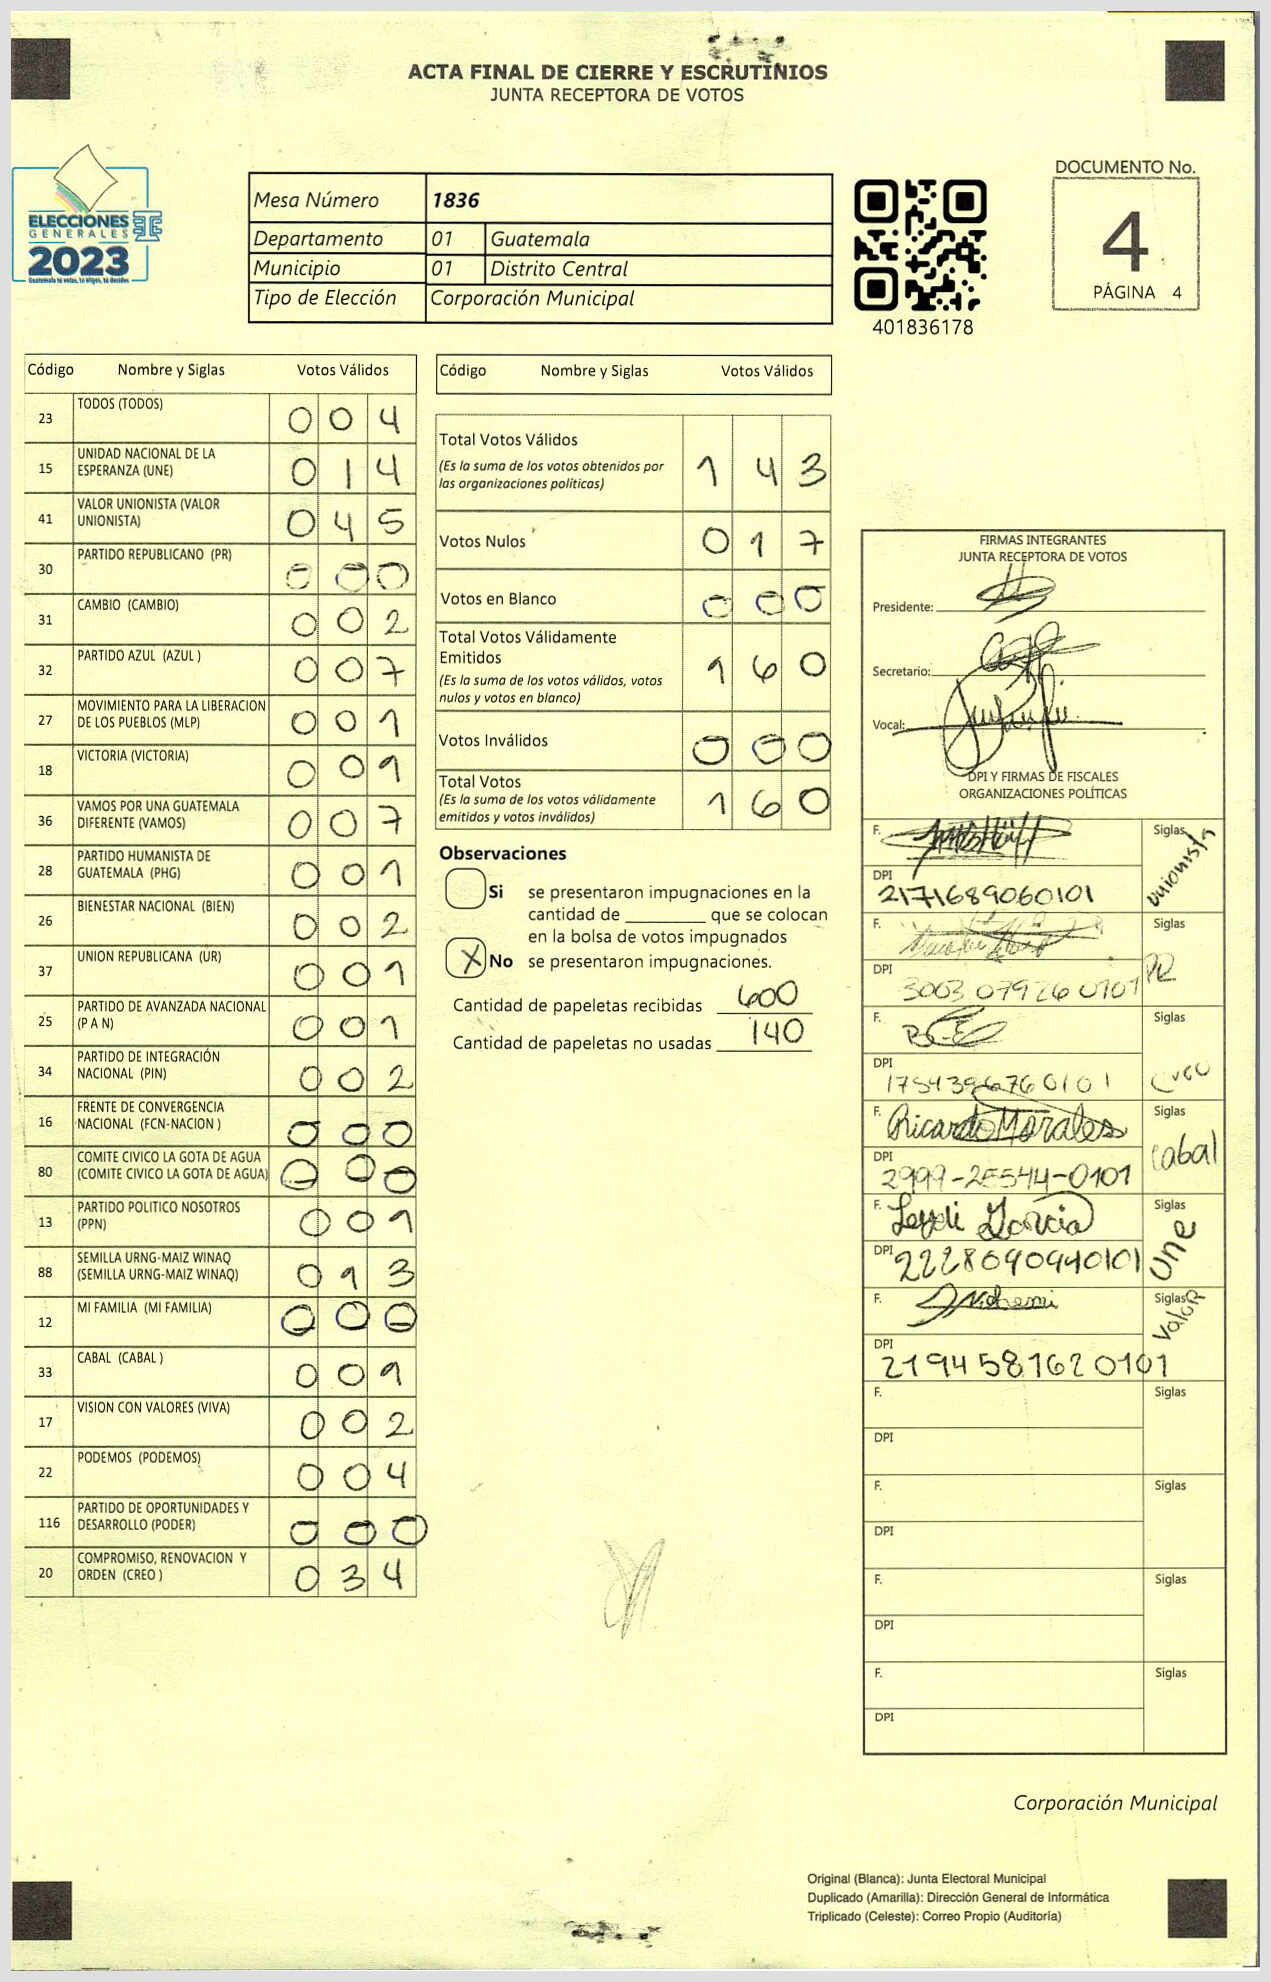 ACTA FINAL DE CIERRE Y ESCRUTINIOS
JUNTA RECEPTORA DE VOTOS
ELECCIONES
GENERALES
2023
Guatemala te votas, tu eliges, tu decides
Mesa Número 1836
Departamento 01 Guatemala
Municipio 01 Distrito Central
Tipo de Elección Corporación Municipal
401836178
DOCUMENTO No.
4
PÁGINA 4
Código Nombre y Siglas Votos Válidos
23 TODOS (TODOS) 0 0 4
15 UNIDAD NACIONAL DE LA
ESPERANZA (UNE) 0 1 4
41 VALOR UNIONISTA (VALOR
UNIONISTA) 0 4 5
30 PARTIDO REPUBLICANO (PR) 0 0 0
31 CAMBIO (CAMBIO) 0 0 2
32 PARTIDO AZUL (AZUL ) 0 0 7
27 MOVIMIENTO PARA LA LIBERACION
DE LOS PUEBLOS (MLP) 0 0 1
18 VICTORIA (VICTORIA) 0 0 1
36 VAMOS POR UNA GUATEMALA
DIFERENTE (VAMOS) 0 0 7
28 PARTIDO HUMANISTA DE
GUATEMALA (PHG) 0 0 1
26 BIENESTAR NACIONAL (BIEN) 0 0 2
37 UNION REPUBLICANA (UR) 0 0 1
25 PARTIDO DE AVANZADA NACIONAL
(P A N) 0 0 1
34 PARTIDO DE INTEGRACIÓN
NACIONAL (PIN) 0 0 2
16 FRENTE DE CONVERGENCIA
NACIONAL (FCN-NACION ) 0 0 0
80 COMITE CIVICO LA GOTA DE AGUA
(COMITE CIVICO LA GOTA DE AGUA) 0 0 0
13 PARTIDO POLITICO NOSOTROS
(PPN) 0 0 1
88 SEMILLA URNG-MAIZ WINAQ
(SEMILLA URNG-MAIZ WINAQ) 0 1 3
12 MI FAMILIA (MI FAMILIA) 0 0 0
33 CABAL (CABAL ) 0 0 1
17 VISION CON VALORES (VIVA) 0 0 2
22 PODEMOS (PODEMOS) 0 0 4
116 PARTIDO DE OPORTUNIDADES Y
DESARROLLO (PODER) 0 0 0
20 COMPROMISO, RENOVACION Y
ORDEN (CREO ) 0 3 4
Código Nombre y Siglas Votos Válidos
Total Votos Válidos
(Es la suma de los votos obtenidos por
las organizaciones políticas) 1 4 3
Votos Nulos 0 1 7
Votos en Blanco 0 0 0
Total Votos Válidamente
Emitidos 1 6 0
(Es la suma de los votos válidos, votos
nulos y votos en blanco)
Votos Inválidos 0 0 0
Total Votos
(Es la suma de los votos válidamente
emitidos y votos inválidos) 1 6 0
Observaciones
Si se presentaron impugnaciones en la
cantidad de ________ que se colocan
en la bolsa de votos impugnados
X No se presentaron impugnaciones.
Cantidad de papeletas recibidas 600
Cantidad de papeletas no usadas 140
FIRMAS INTEGRANTES
JUNTA RECEPTORA DE VOTOS
Presidente:
Secretario:
Vocal:
DPI Y FIRMAS DE FISCALES
ORGANIZACIONES POLÍTICAS
F. Siglas
unionista
DPI
2171689060101
F. Siglas
PR
DPI
3003 07926 0101
F. Siglas
DPI
1754396760101
F. Ricardo Morales Siglas
Cabal
DPI
2999-2E544-0101
F. Leydi Garcia Siglas
Une
DPI 2228090940101
F. Siglas
Valor
DPI
2194581620101
F. Siglas
DPI
F. Siglas
DPI
F. Siglas
DPI
F. Siglas
DPI
Corporación Municipal
Original (Blanca): Junta Electoral Municipal
Duplicado (Amarilla): Dirección General de Informática
Triplicado (Celeste): Correo Propio (Auditoría)